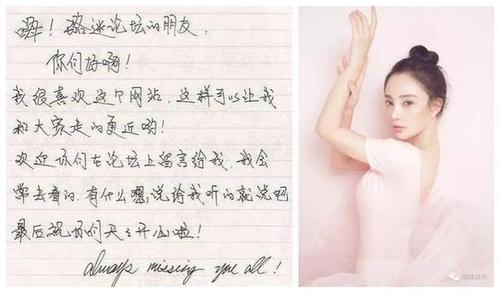 嗨！路迷论坛的朋友，
你们好啊！
我很喜欢这个网站，这样可以让我
和大家走的更近哟！
欢迎你们在论坛上留言给我，我会
常去看的，有什么想说给我听的就说吧
最后祝你们天天开心啦！
always missing you all !